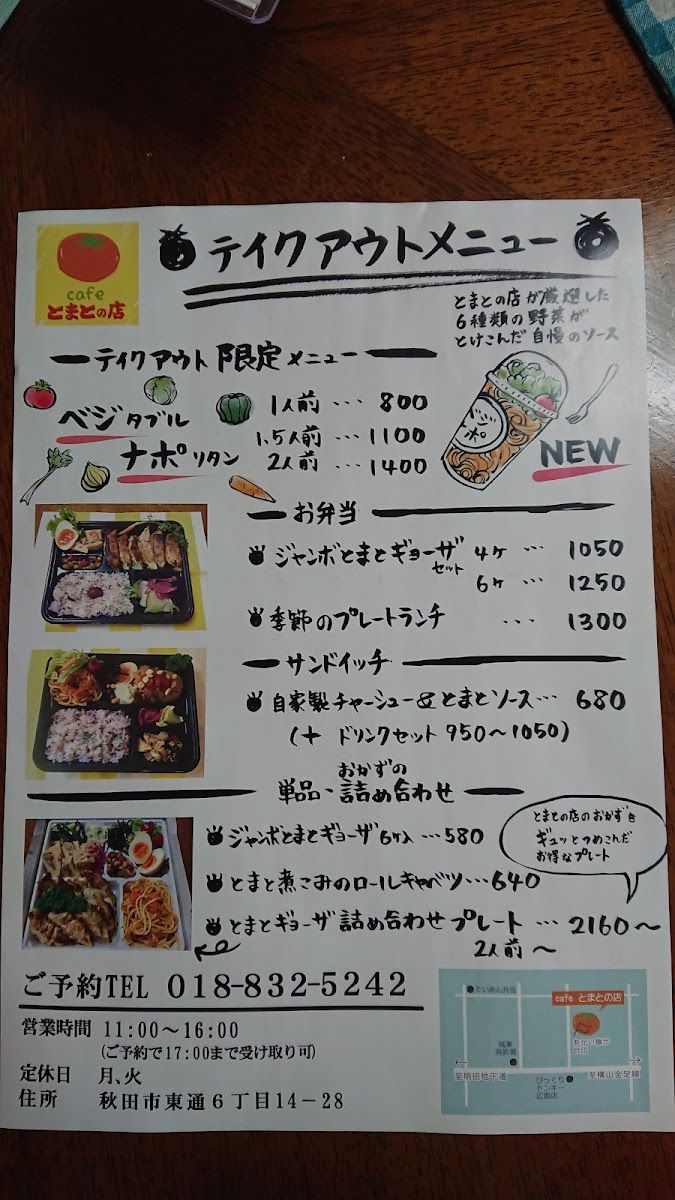 cafe
とまとの店
テイクアウトメニュー
とまとの店が厳選した
6種類の野菜が
とけこんだ自慢のソース
テイクアウト限定メニュー
ベジタブル
ナポリタン
1人前 … 800
1.5人前 … 1100
2人前 … 1400
ベジナポ
NEW
お弁当
ジャンボとまとギョーザセット 4ヶ … 1050
6ヶ … 1250
季節のプレートランチ … 1300
サンドイッチ
自家製チャーシュー&とまとソース … 680
(+ ドリンクセット 950～1050)
単品・おかずの詰め合わせ
ジャンボとまとギョーザ 6ケ入 … 580
とまと煮こみのロールキャベツ … 640
とまとギョーザ詰め合わせプレート … 2160～
2人前～
とまとの店のおかずを
ギュッとつめこんだ
お得なプレート
ご予約TEL 018-832-5242
営業時間 11:00～16:00
(ご予約で17:00まで受け取り可)
定休日 月、火
住所 秋田市東通6丁目14-28
たいあん弁当
cafe とまとの店
あかい旗が
目印
城東
消防署
至明田地下道
至横山金足線
びっくり
ドンキー
広面店